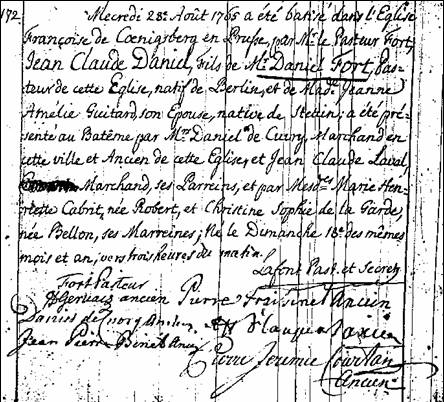 172 Mecredi 28e. Août 1765 a été batisé dans l'Eglise
Françoise de Cœnigsberg en Prusse, par Mr. le Pasteur Fort,
Jean Claude Daniel, fils de Mr. Daniel Fort, Pas-
teur de cette Eglise, natif de Berlin, et de Made. Jeanne
Amélie Guitard, son Epouse, native de Stettin; a été pré-
senté au Batême par Mrs. Daniel de Cuvry, Marchand en
cette ville et Ancien de cette Eglise, et Jean Claude Laval,
Marchand, ses Parreins, et par Mesdes. Marie Hen-
riette Cabrit, née Robert, et Christine Sophie de la Garde,
née Bellon, ses Marreines; Né le Dimanche 18e. des mêmes
mois et an, vers trois heures du matin.
Lafont Past. et Secret.
Fort Pasteur
Gervais ancien Pierre Fraissinet Ancien
Jean Pierre Binet Ancien
Pierre Jeremie Courlan
Ancien